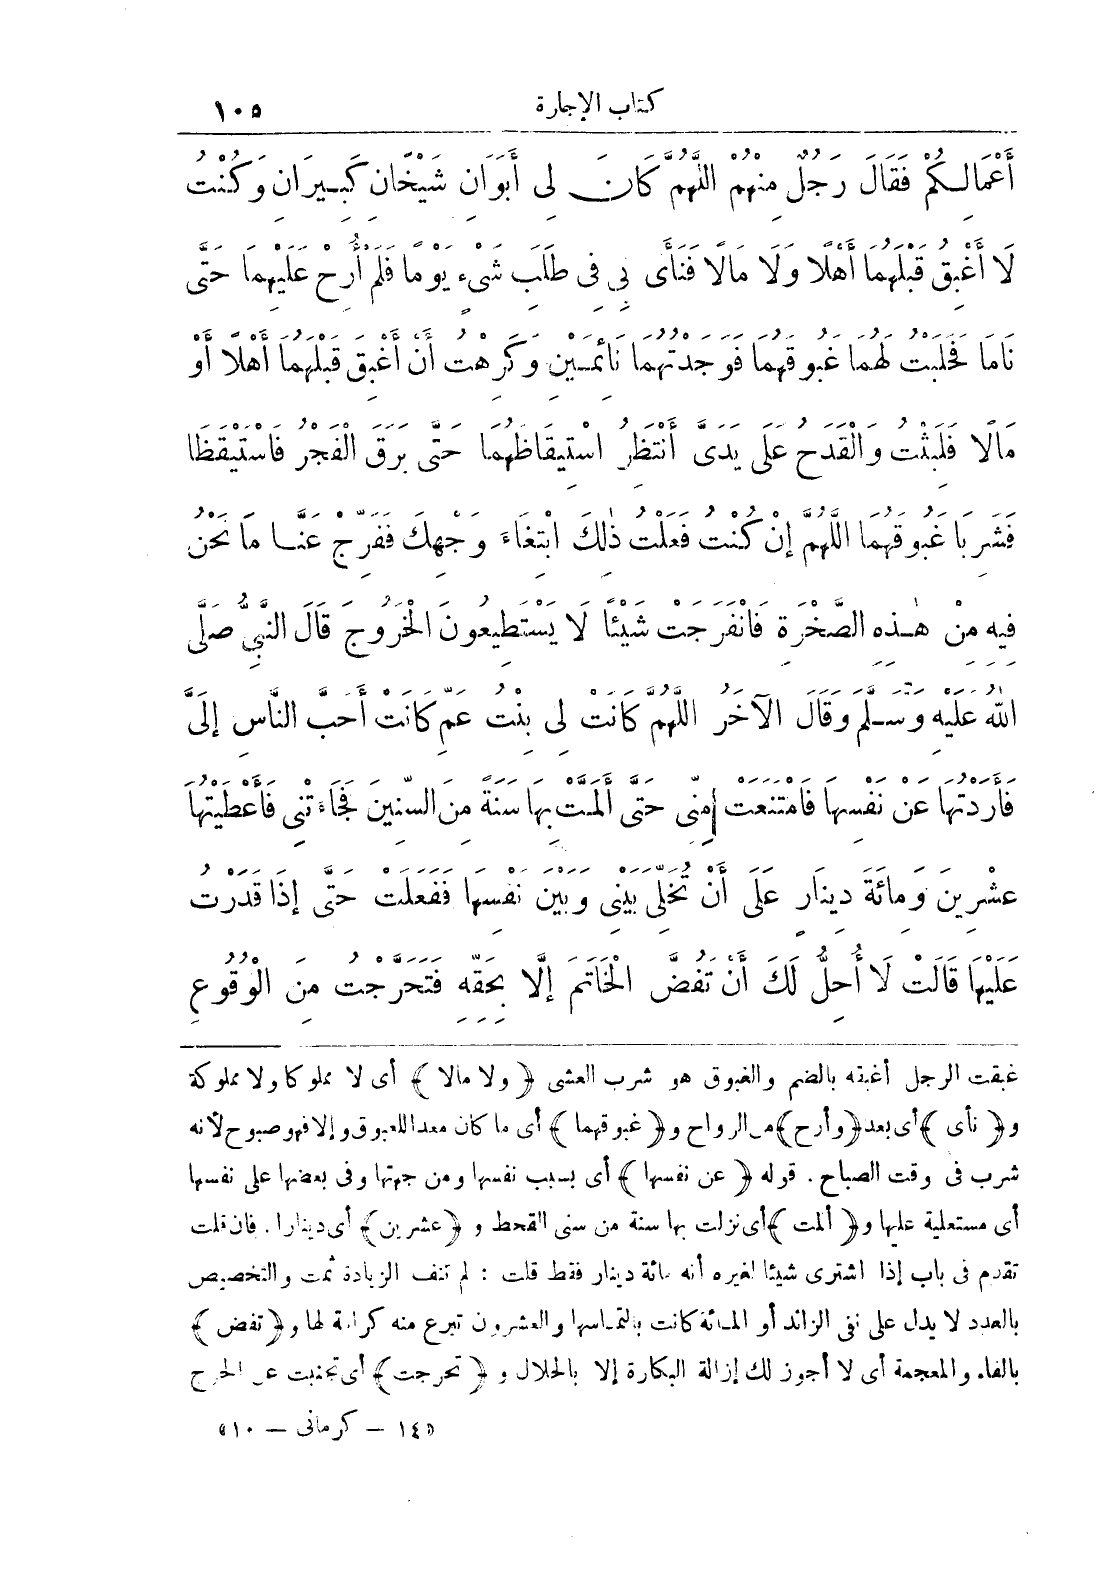 كتاب الإجارة
١٠٥
أَعْمَالِكُمْ فَقَالَ رَجُلٌ مِنْهُمْ اللَّهُمَّ كَانَ لِي أَبَوَانِ شَيْخَانِ كَبِيرَانِ وَكُنْتُ
لَا أَغْبِقُ قَبْلَهُمَا أَهْلًا وَلَا مَالًا فَنَأَى بِي فِى طَلَبِ شَىْءٍ يَوْمًا فَلَمْ أُرِحْ عَلَيْهِمَا حَتَّى
نَامَا فَحَلَبْتُ لَهُمَا غَبُوقَهُمَا فَوَجَدْتُهُمَا نَائِمَيْنِ وَكَرِهْتُ أَنْ أَغْبِقَ قَبْلَهُمَا أَهْلًا أَوْ
مَالًا فَلَبِثْتُ وَالْقَدَحُ عَلَى يَدَىَّ أَنْتَظِرُ اسْتِيقَاظَهُمَا حَتَّى بَرَقَ الْفَجْرُ فَاسْتَيْقَظَا
فَشَرِبَا غَبُوقَهُمَا اللَّهُمَّ إِنْ كُنْتُ فَعَلْتُ ذٰلِكَ ابْتِغَاءَ وَجْهِكَ فَفَرِّجْ عَنَّا مَا نَحْنُ
فِيهِ مِنْ هٰذِهِ الصَّخْرَةِ فَانْفَرَجَتْ شَيْئًا لَا يَسْتَطِيعُونَ الْخُرُوجَ قَالَ النَّبِيُّ صَلَّى
اللهُ عَلَيْهِ وَسَلَّمَ وَقَالَ الآخَرُ اللَّهُمَّ كَانَتْ لِي بِنْتُ عَمٍّ كَانَتْ أَحَبَّ النَّاسِ إِلَىَّ
فَأَرَدْتُهَا عَنْ نَفْسِهَا فَامْتَنَعَتْ مِنِّى حَتَّى أَلَمَّتْ بِهَا سَنَةٌ مِنَ السِّنِينَ فَجَاءَتْنِى فَأَعْطَيْتُهَا
عِشْرِينَ وَمِائَةَ دِينَارٍ عَلَى أَنْ تُخَلِّىَ بَيْنِى وَبَيْنَ نَفْسِهَا فَفَعَلَتْ حَتَّى إِذَا قَدَرْتُ
عَلَيْهَا قَالَتْ لَا أُحِلُّ لَكَ أَنْ تَفُضَّ الْخَاتَمَ إِلَّا بِحَقِّهِ فَتَحَرَّجْتُ مِنَ الْوُقُوعِ
غبقت الرجل أغبقه بالضم والغبوق هو شرب العشى ﴿ ولا مالا ﴾ أى لا مملوكا ولا مملوكة
و﴿ نأى ﴾ أى بعد ﴿ وأرح ﴾ من الرواح و﴿ غبوقهما ﴾ أى ما كان معدا للغبوق وإلا فهو صبوح لأنه
شرب فى وقت الصباح . قوله ﴿ عن نفسها ﴾ أى بسبب نفسها ومن جهتها وفى بعضها على نفسها
أى مستعلية عليها و﴿ ألمت ﴾ أى نزلت بها سنة من سنى القحط و ﴿ عشرين ﴾ أى دينارا . فان قلت
تقدم فى باب إذا اشترى شيئا لغيره أنه مائة دينار فقط قلت : لم تنف الزيادة ثمت والتخصيص
بالعدد لا يدل على نفى الزائد أو المائة كانت بالتماسها والعشرون تبرع منه كرامة لها و﴿ تفض ﴾
بالفاء والمعجمة أى لا أجوز لك إزالة البكارة إلا بالحلال و ﴿ تحرجت ﴾ أى تجنبت عن الحرج
«١٤ – كرمانى – ١٠»